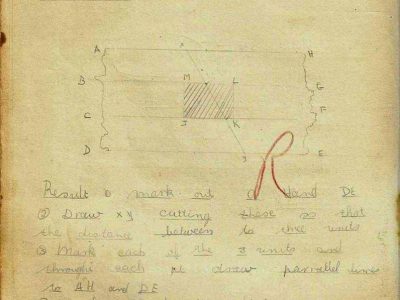 A H
x
M L
B G
F
C J K
D y E
R
Result ① mark out a band DE
② Draw xy cutting these so that
the distance between to three units
③ Mark each of the 3 units and
throught each pt draw parrallel lines
to AH and DE